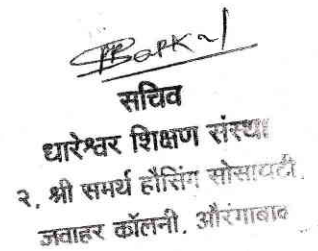 सचिव
धारेश्वर शिक्षण संस्था
२, श्री समर्थ हौसिंग सोसायटी,
जवाहर कॉलनी, औरंगाबाद